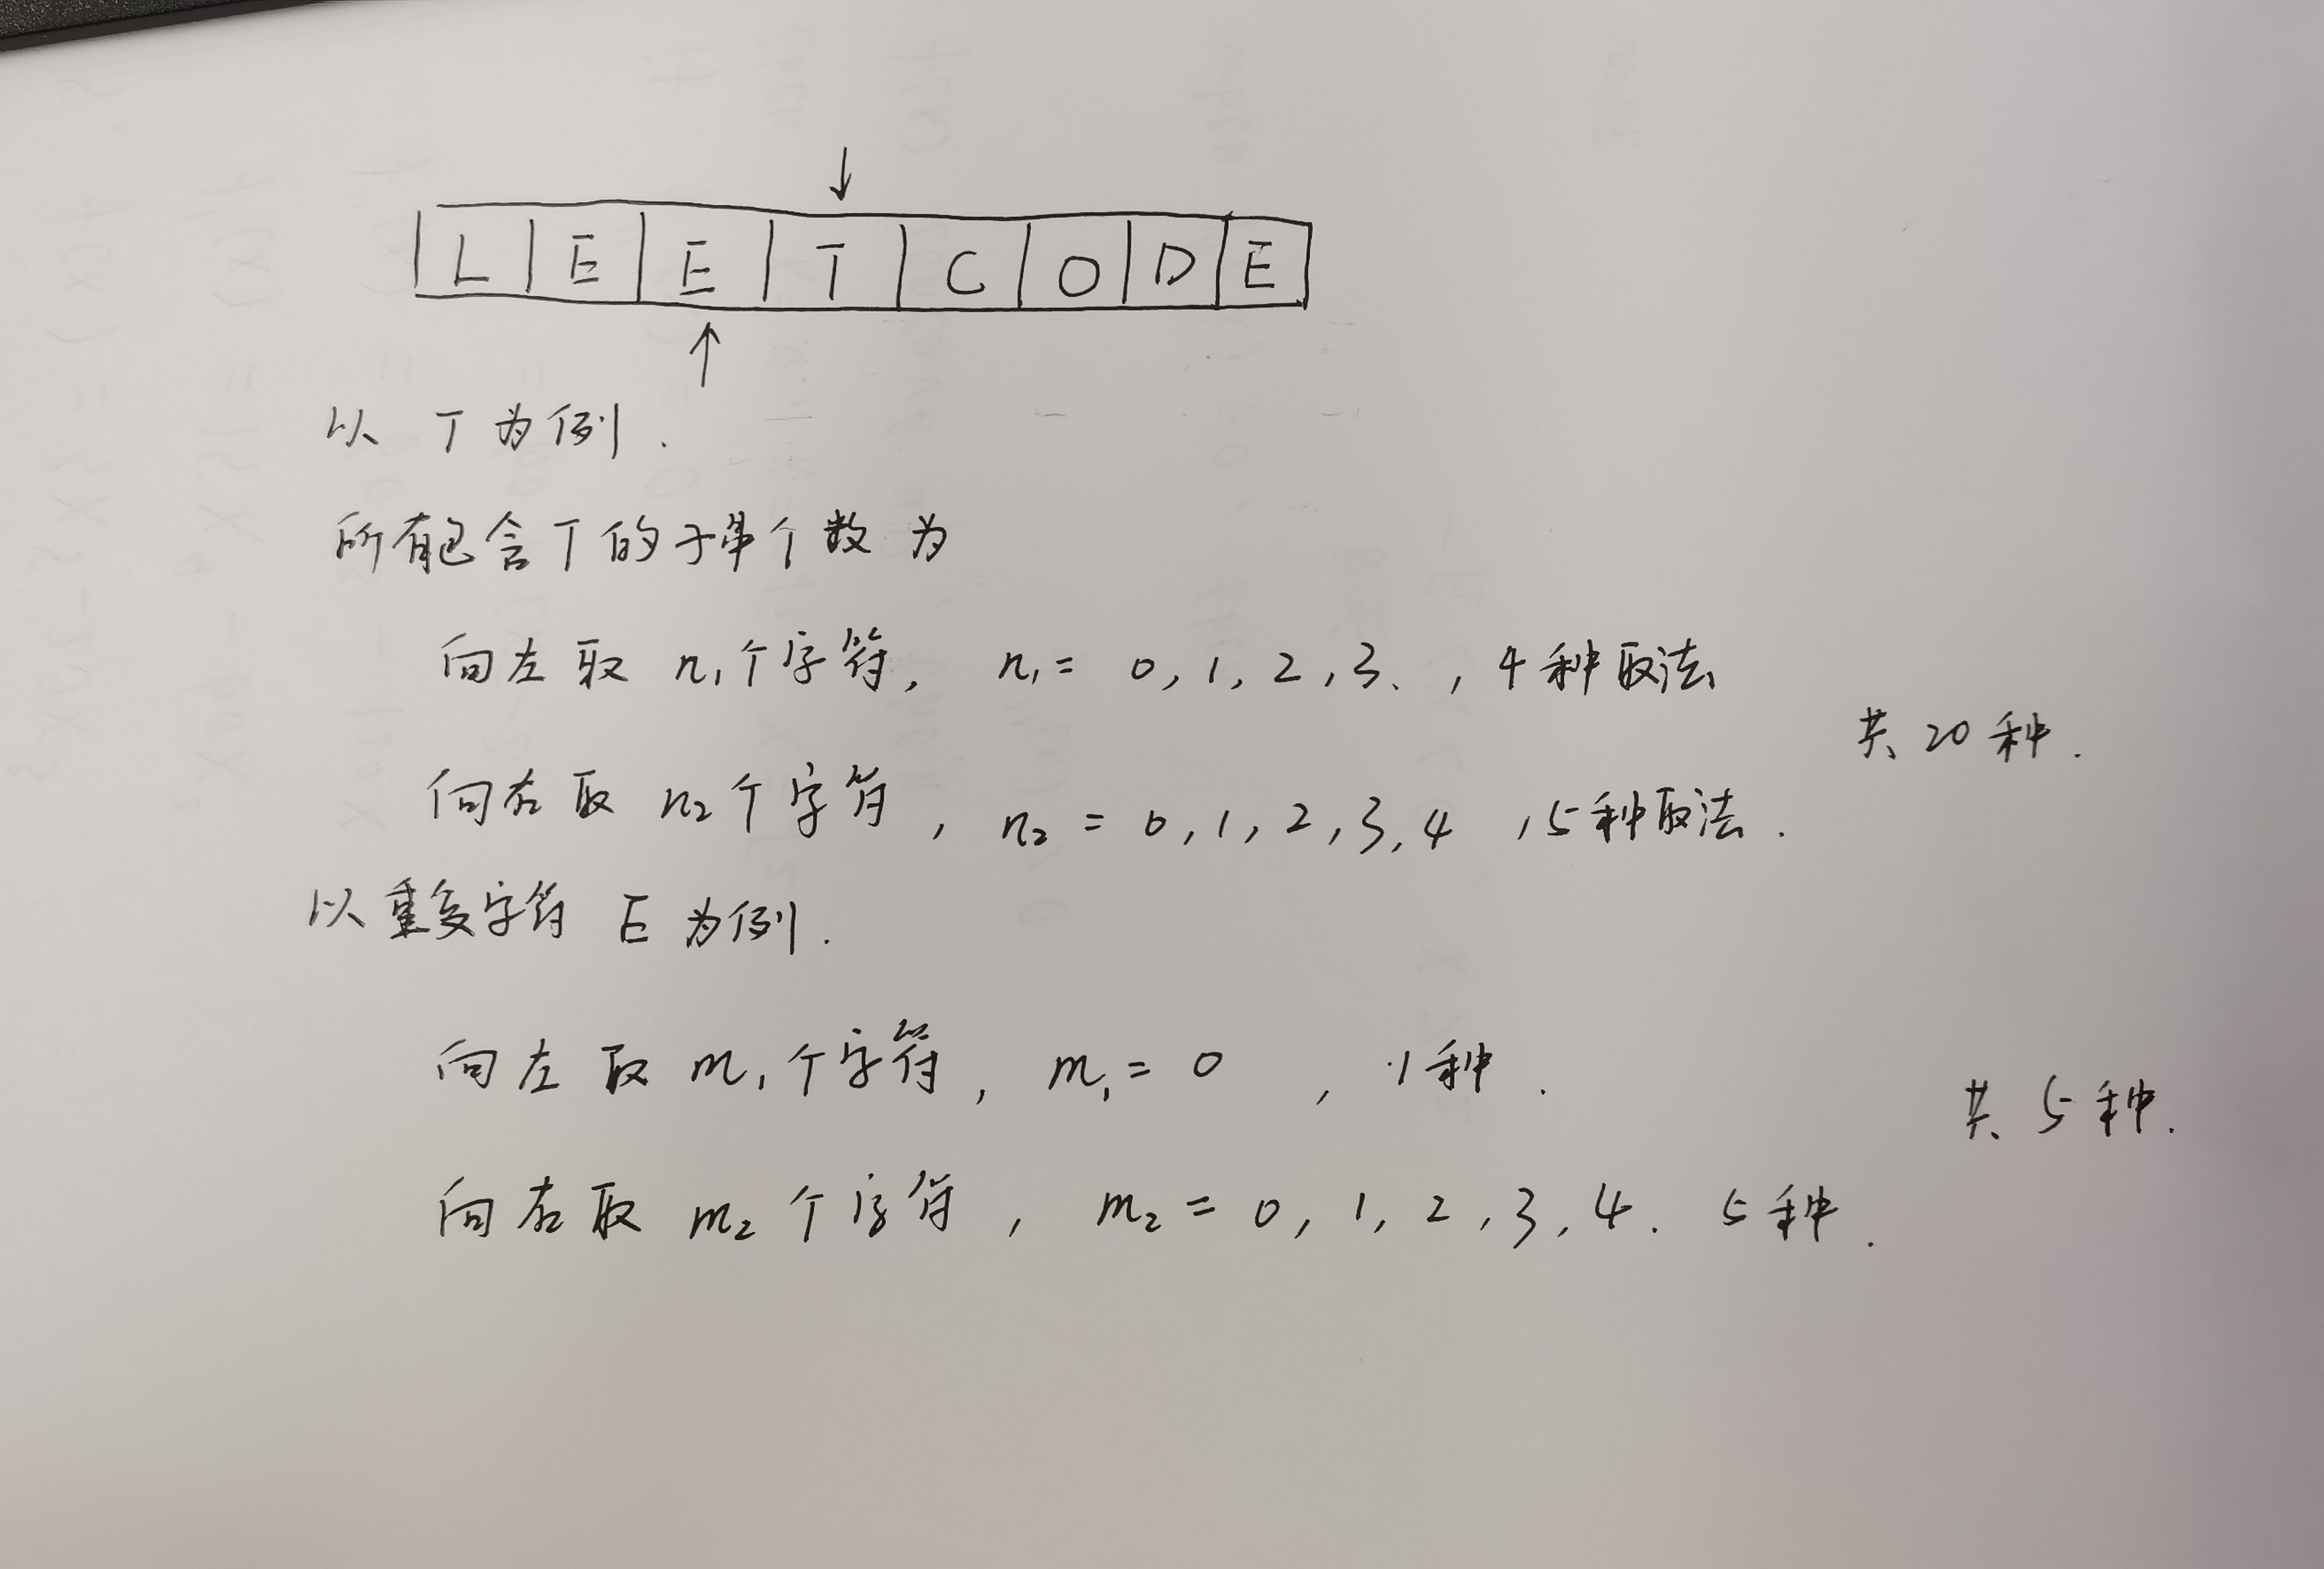 LEETCODE
以 T 为例.
所有包含T的子串个数为
向左取 n₁个字符, n₁= 0,1,2,3、,4种取法
共20种.
向右取 n₂个字符, n₂ = 0,1,2,3,4 ,5种取法.
以重复字符 E 为例.
向左取 m₁个字符, m₁= 0 , 1种.
共5种.
向右取 m₂个字符, m₂ = 0,1,2,3,4. 5种.